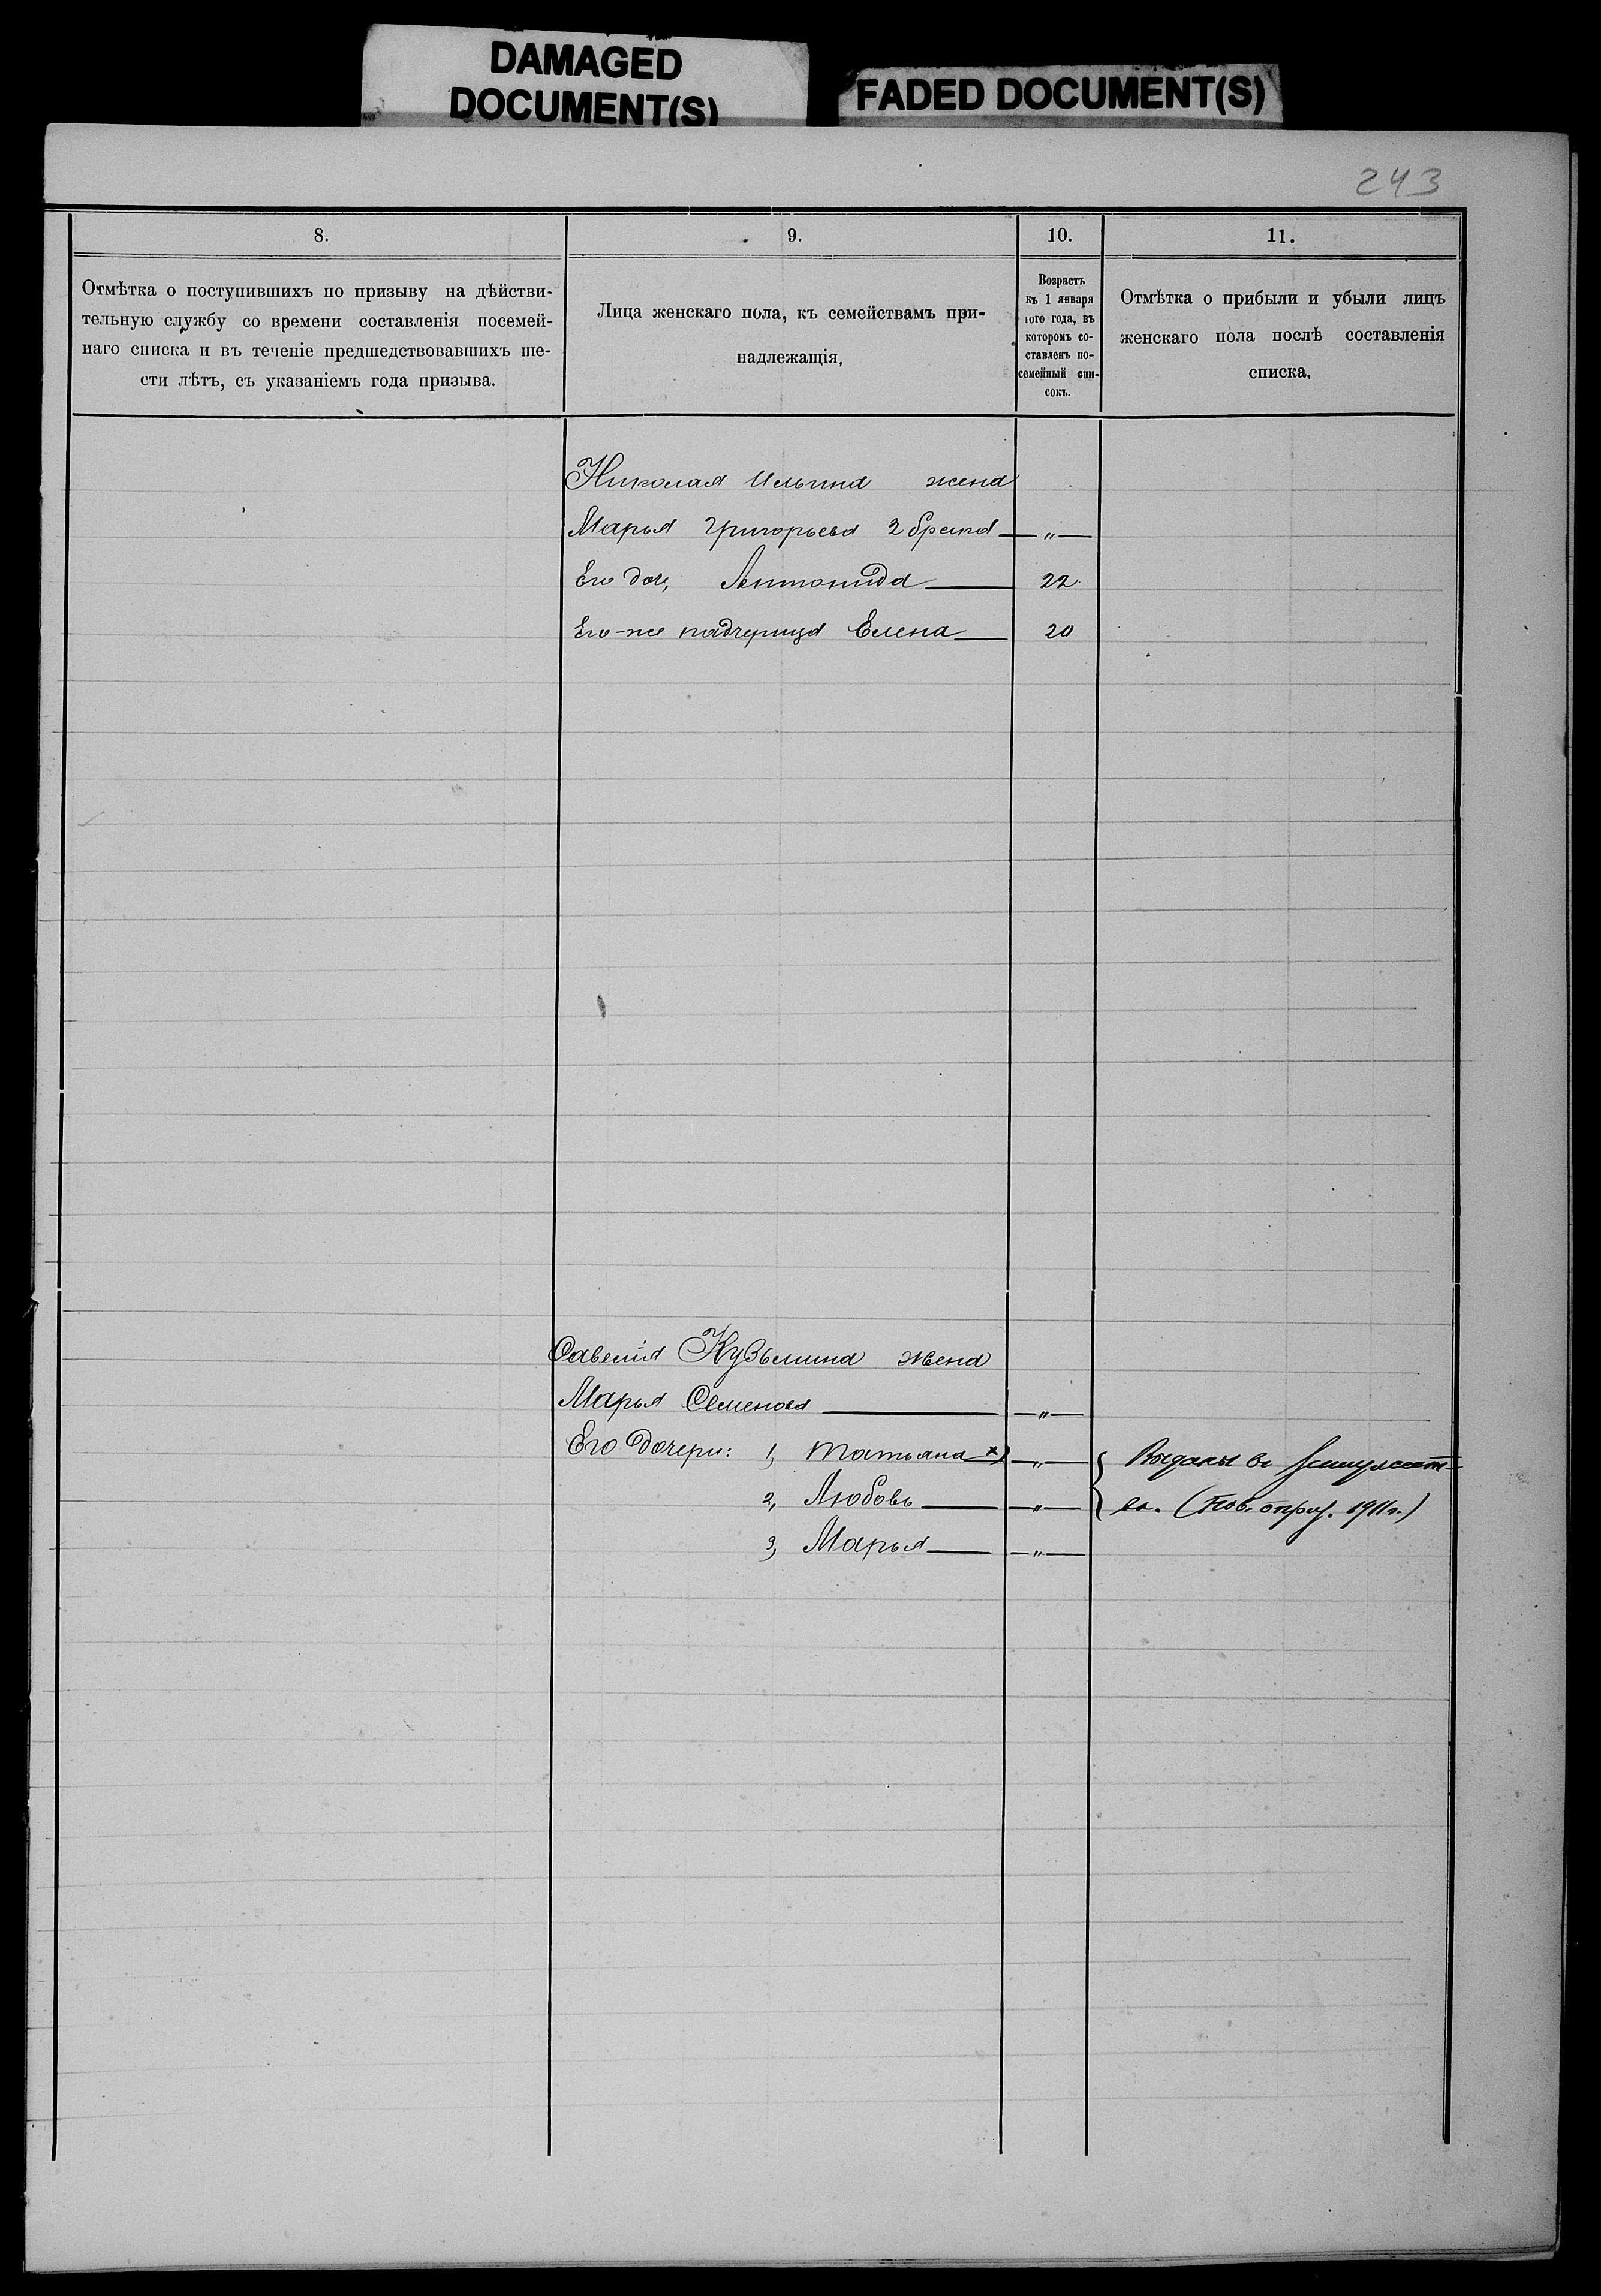 DAMAGED
DOCUMENT(S)
FADED DOCUMENT(S)
243
8.
9.
10.
11.
Отмѣтка о поступившихъ по призыву на дѣйстви-
тельную службу со времени составленія посемей-
наго списка и въ теченіе предшедствовавшихъ ше-
сти лѣтъ, съ указаніемъ года призыва.
Лица женскаго пола, къ семействамъ при-
надлежащія,
Возрастъ
къ 1 января
того года, въ
которомъ со-
ставленъ по-
семейный спи-
сокъ.
Отмѣтка о прибыли и убыли лицъ
женскаго пола послѣ составленія
списка,
Николая Ильина жена
Марья Григорьева 2 брака — „ —
Его доч, Антонида — 22
Его-же падчерица Елена — 20
Савелія Кузьмина жена
Марья Семенова — „ —
Его дочери: 1, Татьяна х) — „ —
2, Любовь — „ —
3, Марья — „ —
Выданы въ замужест-
во. (Пов. опрос. 1911 г.)